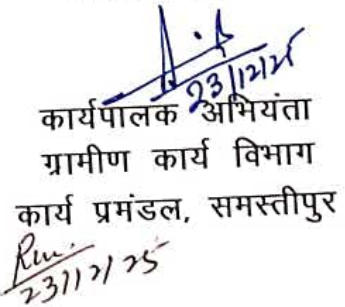 23/12/25
कार्यपालक अभियंता
ग्रामीण कार्य विभाग
कार्य प्रमंडल, समस्तीपुर
23/12/25